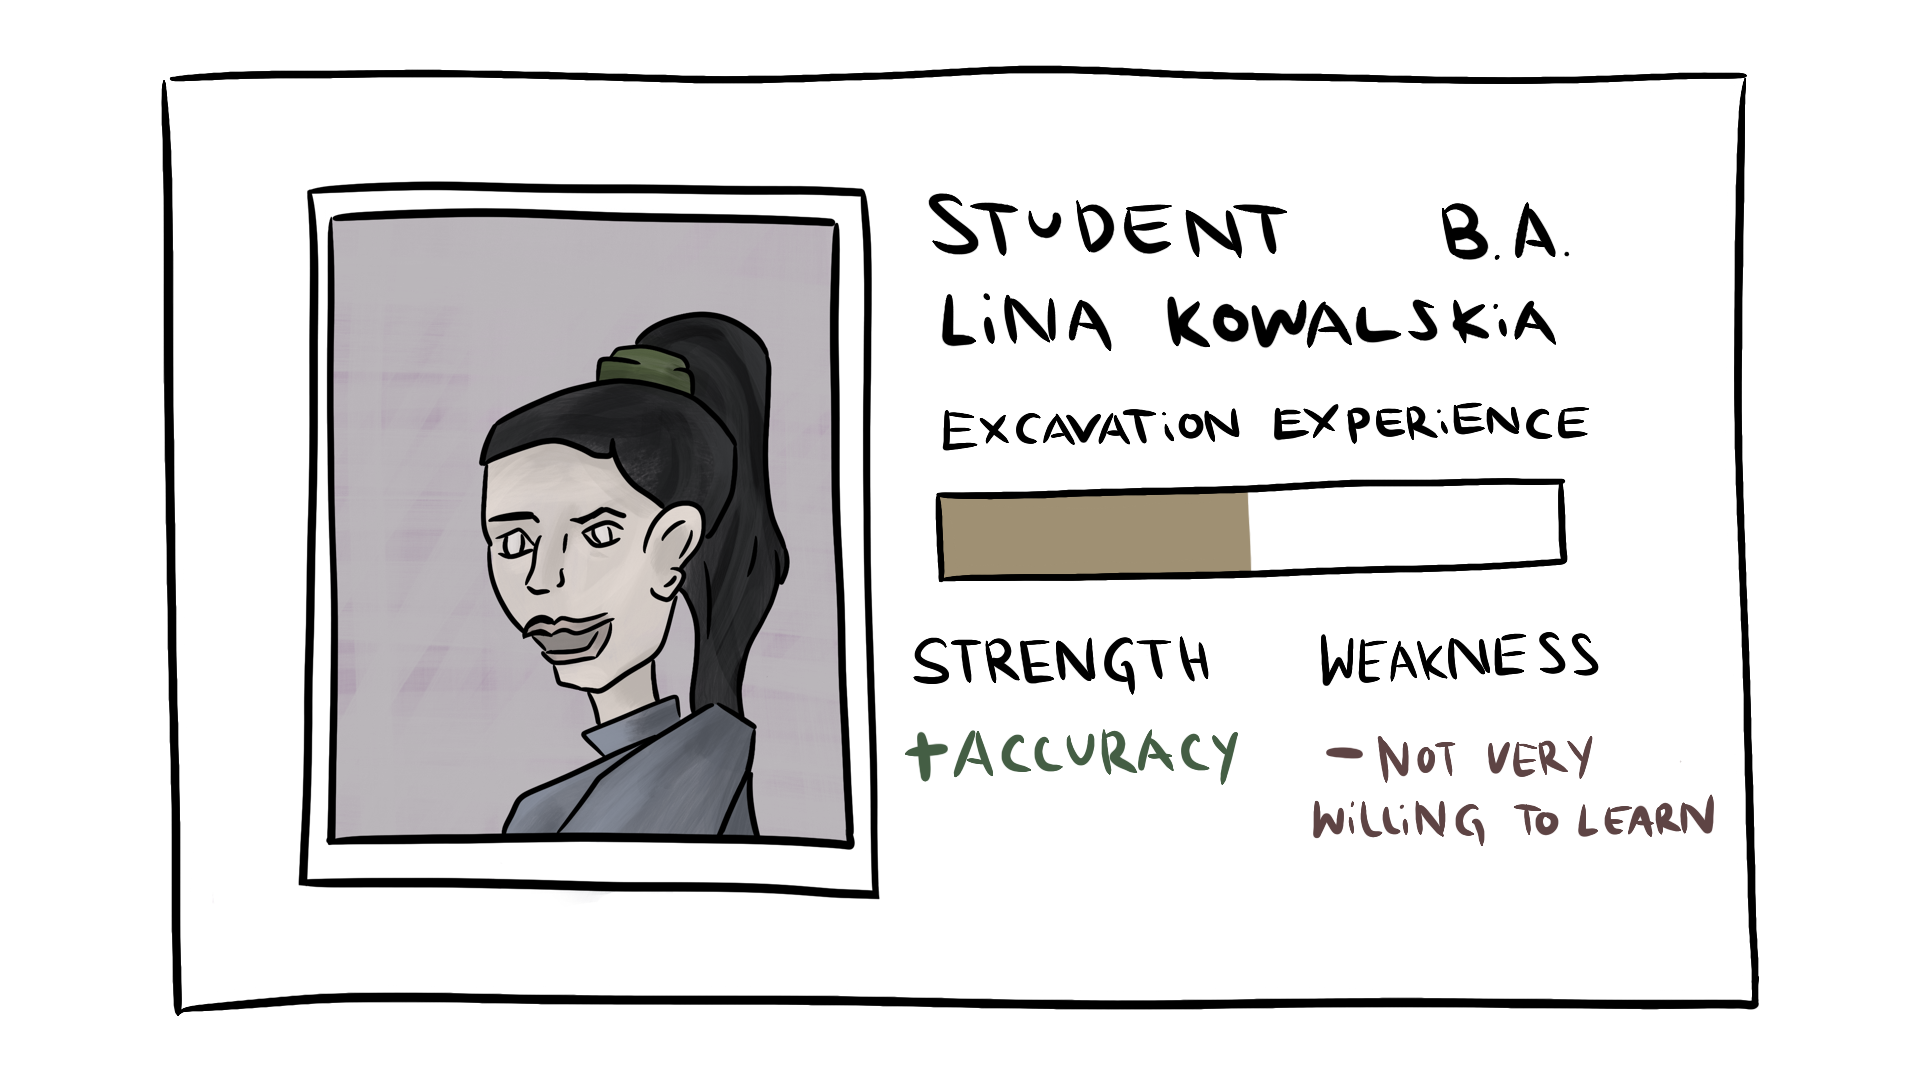 STUDENT B.A.
LiNA KOWALSKiA
EXCAVATiON EXPERiENCE
STRENGTH WEAKNESS
+ACCURACY - NOT VERY
WiLLiNG TO LEARN